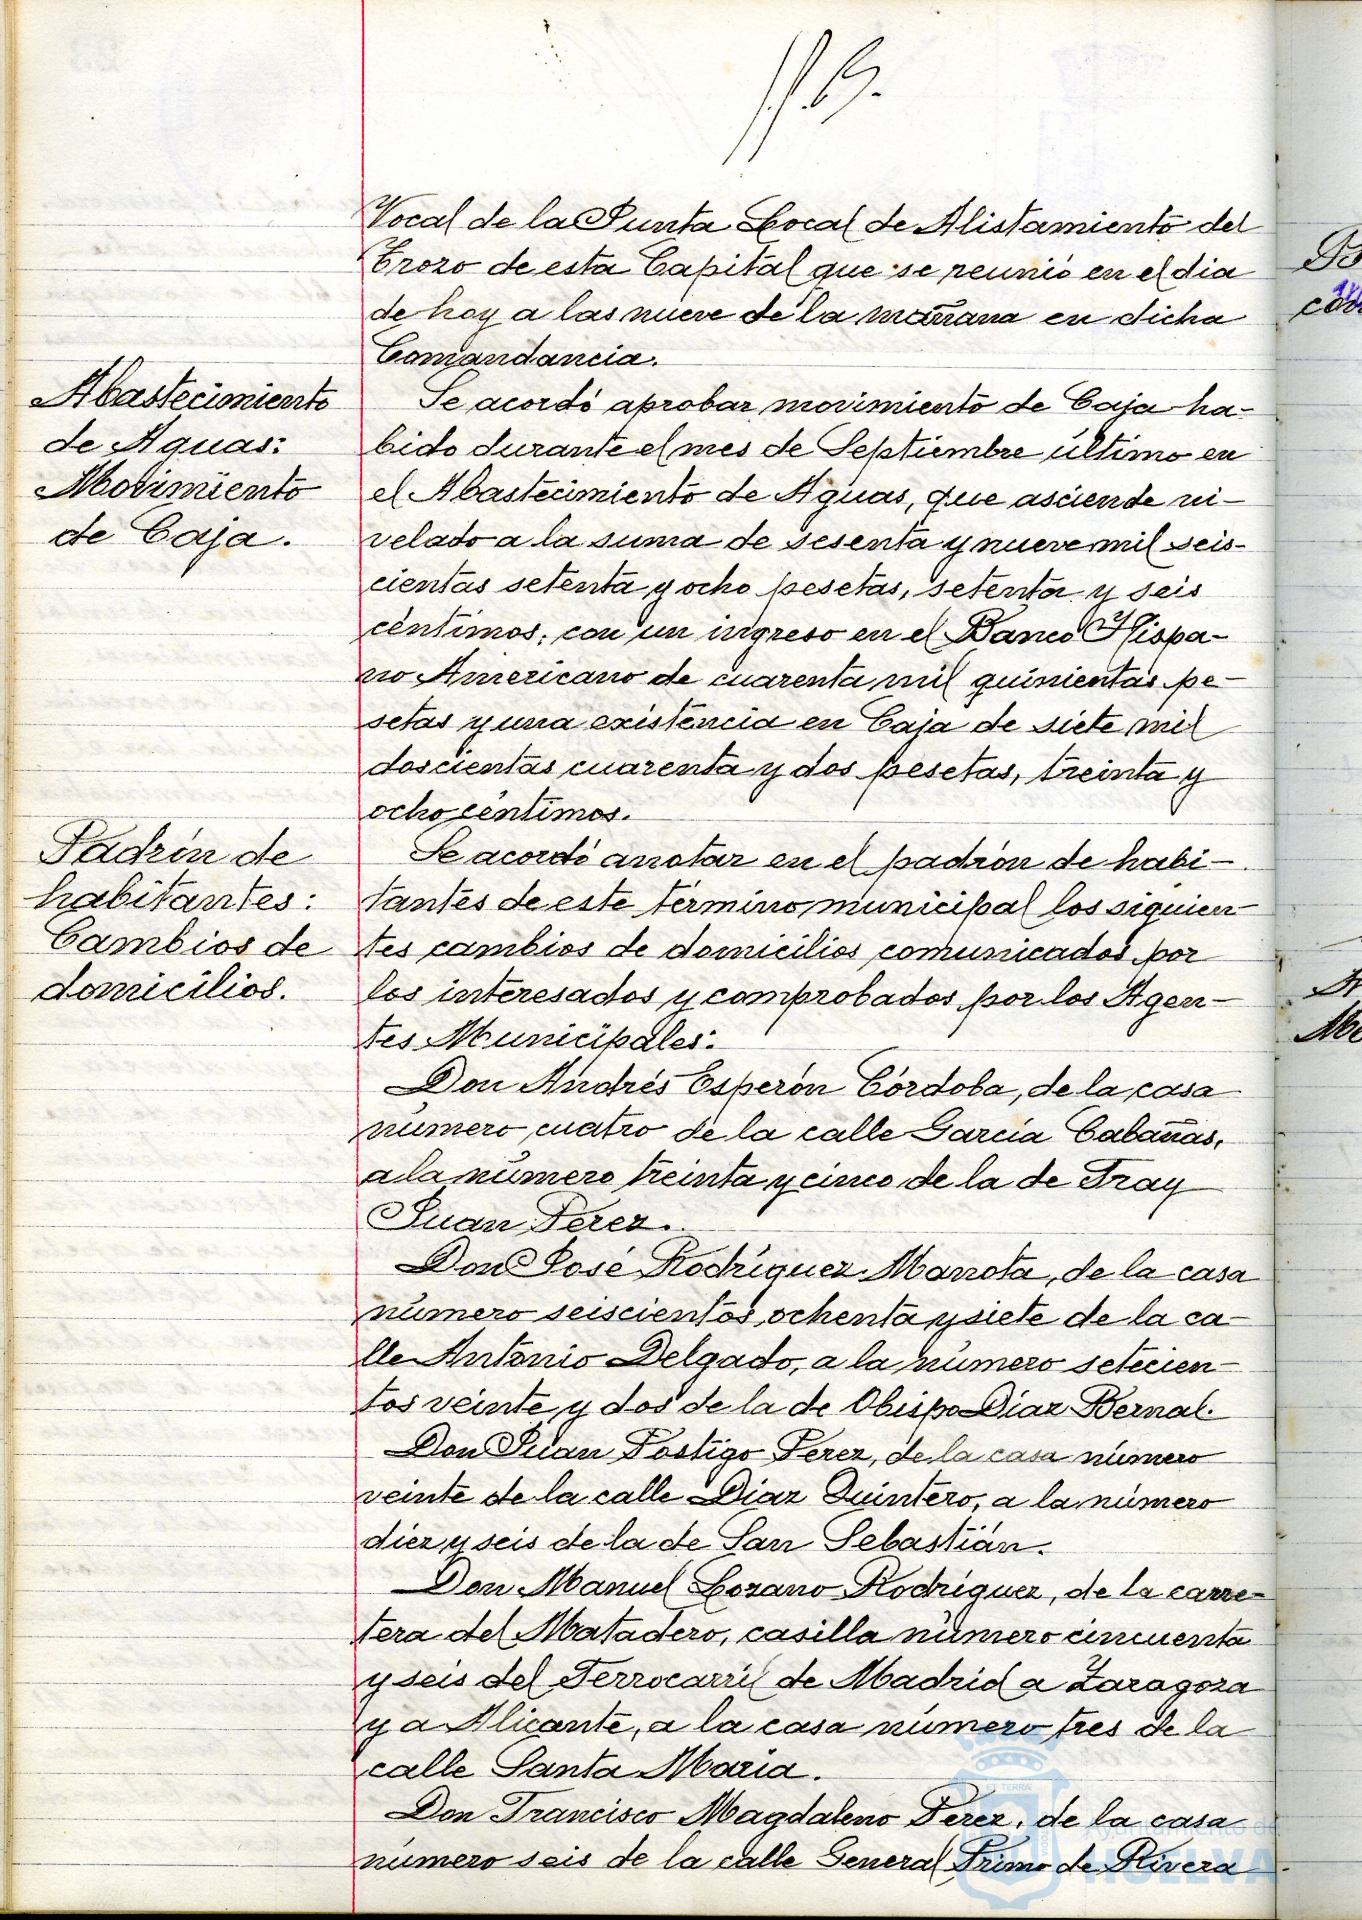 Vocal de la Junta Local de Alistamiento del
Trozo de esta Capital que se reunió en el dia
de hoy a las nueve de la mañana en dicha
Comandancia.
Abastecimiento
de Aguas:
Movimiento
de Caja.
Se acordó aprobar movimiento de Caja ha-
bido durante el mes de Septiembre último en
el Abastecimiento de Aguas, que asciende ni-
velado a la suma de sesenta y nueve mil seis-
cientas setenta y ocho pesetas, setenta y seis
céntimos, con un ingreso en el Banco Hispa-
no Americano de cuarenta mil quinientas pe-
setas y una existencia en Caja de siete mil
doscientas cuarenta y dos pesetas, treinta y
ocho céntimos.
Padrón de
habitantes:
Cambios de
domicilios.
Se acordó anotar en el padrón de habi-
tantes de este término municipal los siguien-
tes cambios de domicilios comunicados por
los interesados y comprobados por los Agen-
tes Municipales:
Don Andrés Esperón Córdoba, de la casa
número cuatro de la calle García Cabañas,
a la número treinta y cinco de la de Fray
Juan Pérez.
Don José Rodríguez Marrota, de la casa
número seiscientos ochenta y siete de la ca-
lle Antonio Delgado, a la número setecien-
tos veinte y dos de la de Obispo Díaz Bernal.
Don Juan Postigo Perez, de la casa número
veinte de la calle Díaz Quintero, a la número
diez y seis de la de San Sebastián.
Don Manuel Lozano Rodríguez, de la carre-
tera del Matadero, casilla número cincuenta
y seis del Ferrocarril de Madrid a Zaragoza
y a Alicante, a la casa número tres de la
calle Santa María.
Don Francisco Magdaleno Perez, de la casa
número seis de la calle General Primo de Rivera
Ayuntamiento de
HUELVA